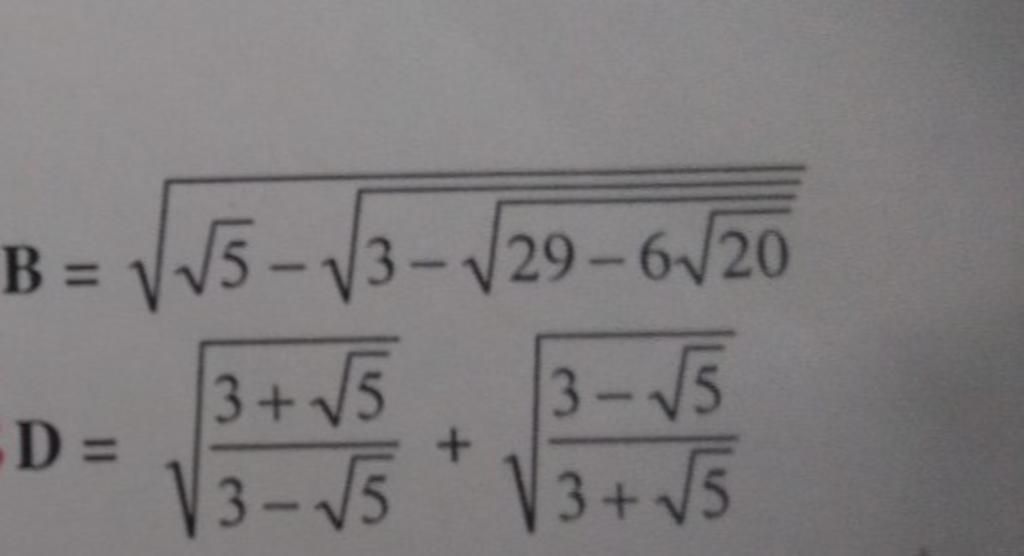 B = √(√5 − √(3 − √(29 − 6√20)))
D = √((3 + √5)/(3 − √5)) + √((3 − √5)/(3 + √5))